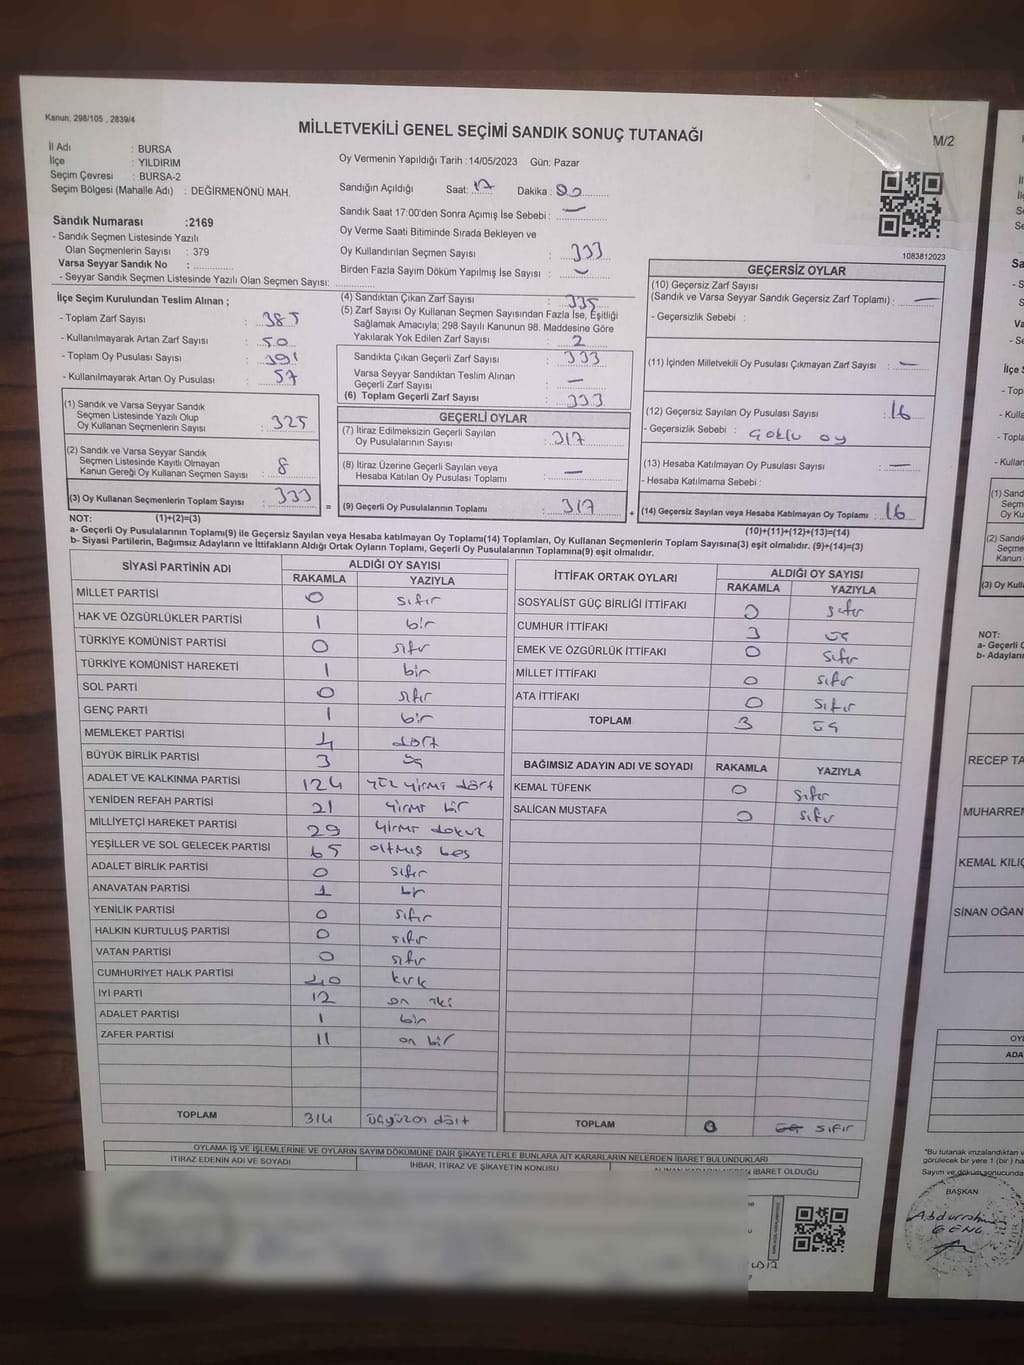 Kanun; 298/105 , 2839/4
MİLLETVEKİLİ GENEL SEÇİMİ SANDIK SONUÇ TUTANAĞI
M/2
İl Adı : BURSA
İlçe : YILDIRIM
Seçim Çevresi : BURSA-2
Seçim Bölgesi (Mahalle Adı) : DEĞİRMENÖNÜ MAH.
Oy Vermenin Yapıldığı Tarih :14/05/2023 Gün: Pazar
Sandığın Açıldığı Saat: 17 Dakika : 00
Sandık Saat 17:00'den Sonra Açımış İse Sebebi : —
Sandık Numarası :2169
- Sandık Seçmen Listesinde Yazılı
Olan Seçmenlerin Sayısı : 379
Varsa Seyyar Sandık No :
- Seyyar Sandık Seçmen Listesinde Yazılı Olan Seçmen Sayısı:
Oy Verme Saati Bitiminde Sırada Bekleyen ve
Oy Kullandırılan Seçmen Sayısı : 333
Birden Fazla Sayım Döküm Yapılmış İse Sayısı : —
1083812023
İlçe Seçim Kurulundan Teslim Alınan ;
- Toplam Zarf Sayısı : 385
- Kullanılmayarak Artan Zarf Sayısı : 50
- Toplam Oy Pusulası Sayısı : 391
- Kullanılmayarak Artan Oy Pusulası : 57
(1) Sandık ve Varsa Seyyar Sandık
Seçmen Listesinde Yazılı Olup
Oy Kullanan Seçmenlerin Sayısı : 325
(2) Sandık ve Varsa Seyyar Sandık
Seçmen Listesinde Kayıtlı Olmayan
Kanun Gereği Oy Kullanan Seçmen Sayısı : 8
(3) Oy Kullanan Seçmenlerin Toplam Sayısı : 333
(4) Sandıktan Çıkan Zarf Sayısı : 335
(5) Zarf Sayısı Oy Kullanan Seçmen Sayısından Fazla İse, Eşitliği
Sağlamak Amacıyla; 298 Sayılı Kanunun 98. Maddesine Göre
Yakılarak Yok Edilen Zarf Sayısı : 2
Sandıkta Çıkan Geçerli Zarf Sayısı : 333
Varsa Seyyar Sandıktan Teslim Alınan
Geçerli Zarf Sayısı : —
(6) Toplam Geçerli Zarf Sayısı : 333
GEÇERLİ OYLAR
(7) İtiraz Edilmeksizin Geçerli Sayılan
Oy Pusulalarının Sayısı : 317
(8) İtiraz Üzerine Geçerli Sayılan veya
Hesaba Katılan Oy Pusulası Toplamı : —
= (9) Geçerli Oy Pusulalarının Toplamı : 317
GEÇERSİZ OYLAR
(10) Geçersiz Zarf Sayısı
(Sandık ve Varsa Seyyar Sandık Geçersiz Zarf Toplamı) : —
- Geçersizlik Sebebi :
(11) İçinden Milletvekili Oy Pusulası Çıkmayan Zarf Sayısı : —
(12) Geçersiz Sayılan Oy Pusulası Sayısı : 16
- Geçersizlik Sebebi : Çoklu oy
(13) Hesaba Katılmayan Oy Pusulası Sayısı : —
- Hesaba Katılmama Sebebi :
+ (14) Geçersiz Sayılan veya Hesaba Katılmayan Oy Toplamı : 16
NOT: (1)+(2)=(3)
(10)+(11)+(12)+(13)=(14)
a- Geçerli Oy Pusulalarının Toplamı(9) ile Geçersiz Sayılan veya Hesaba katılmayan Oy Toplamı(14) Toplamları, Oy Kullanan Seçmenlerin Toplam Sayısına(3) eşit olmalıdır. (9)+(14)=(3)
b- Siyasi Partilerin, Bağımsız Adayların ve İttifakların Aldığı Ortak Oyların Toplamı, Geçerli Oy Pusulalarının Toplamına(9) eşit olmalıdır.
SİYASİ PARTİNİN ADI ALDIĞI OY SAYISI
RAKAMLA YAZIYLA
MİLLET PARTİSİ 0 sıfır
HAK VE ÖZGÜRLÜKLER PARTİSİ 1 bir
TÜRKİYE KOMÜNİST PARTİSİ 0 sıfır
TÜRKİYE KOMÜNİST HAREKETİ 1 bir
SOL PARTİ 0 sıfır
GENÇ PARTİ 1 bir
MEMLEKET PARTİSİ 4 dört
BÜYÜK BİRLİK PARTİSİ 3 üç
ADALET VE KALKINMA PARTİSİ 124 yüz yirmi dört
YENİDEN REFAH PARTİSİ 21 yirmi bir
MİLLİYETÇİ HAREKET PARTİSİ 29 yirmi dokuz
YEŞİLLER VE SOL GELECEK PARTİSİ 65 altmış beş
ADALET BİRLİK PARTİSİ 0 sıfır
ANAVATAN PARTİSİ 1 bir
YENİLİK PARTİSİ 0 sıfır
HALKIN KURTULUŞ PARTİSİ 0 sıfır
VATAN PARTİSİ 0 sıfır
CUMHURİYET HALK PARTİSİ 40 kırk
İYİ PARTİ 12 on iki
ADALET PARTİSİ 1 bir
ZAFER PARTİSİ 11 on bir
TOPLAM 314 üçyüzon dört
İTTİFAK ORTAK OYLARI ALDIĞI OY SAYISI
RAKAMLA YAZIYLA
SOSYALİST GÜÇ BİRLİĞİ İTTİFAKI 0 sıfır
CUMHUR İTTİFAKI 3 üç
EMEK VE ÖZGÜRLÜK İTTİFAKI 0 sıfır
MİLLET İTTİFAKI 0 sıfır
ATA İTTİFAKI 0 sıfır
TOPLAM 3 üç
BAĞIMSIZ ADAYIN ADI VE SOYADI RAKAMLA YAZIYLA
KEMAL TÜFENK 0 sıfır
SALİCAN MUSTAFA 0 sıfır
TOPLAM 0 üç sıfır
OYLAMA İŞ VE İŞLEMLERİNE VE OYLARIN SAYIM DÖKÜMÜNE DAİR ŞİKAYETLERLE BUNLARA AİT KARARLARIN NELERDEN İBARET BULUNDUKLARI
İTİRAZ EDENİN ADI VE SOYADI İHBAR, İTİRAZ VE ŞİKAYETİN KONUSU ALINAN KARARIN NEDEN İBARET OLDUĞU
NOT:
a- Geçerli
b- Adayların
RECEP TA
MUHARREM
KEMAL KILIÇ
SİNAN OĞAN
OY
ADA
"Bu tutanak imzalandıktan
görülecek bir yere 1 (bir) ha
Sayım ve döküm sonucunda
BAŞKAN
Abdurrahim
GENÇ